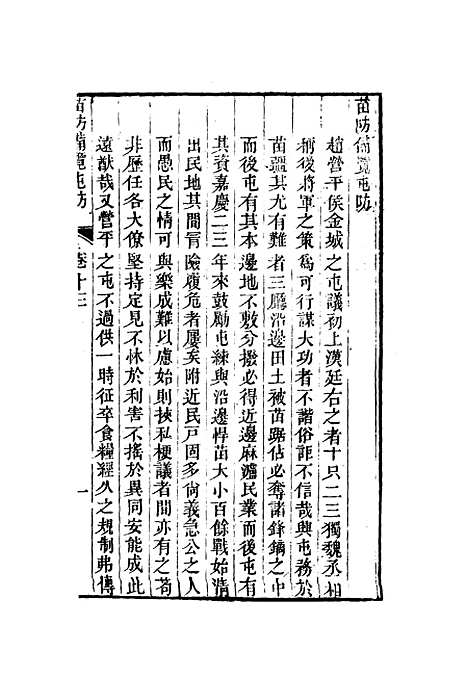 苗防備覽屯防
趙營平侯金城之屯議初上漢廷右之者十只二三獨魏丞相
稱後將軍之策爲可行謀大功者不諧俗詎不信哉興屯務於
苗疆其尤有難者三廳沿邊田土被苗踞佔必奪諸鋒鏑之中
而後屯有其本邊地不敷分撥必得近邊麻瀘民業而後屯有
其資嘉慶二三年來鼓勵屯練與沿邊悍苗大小百餘戰始清
出民地其間冒險履危者屢矣附近民戸固多尙義急公之人
而愚民之情可與樂成難以慮始則挾私梗議者間亦有之苟
非歷任各大僚堅持定見不怵於利害不搖於異同安能成此
遠猷哉又營平之屯不過供一時征卒食糧經久之規制弗傳
苗防備覽屯防
卷十三
一